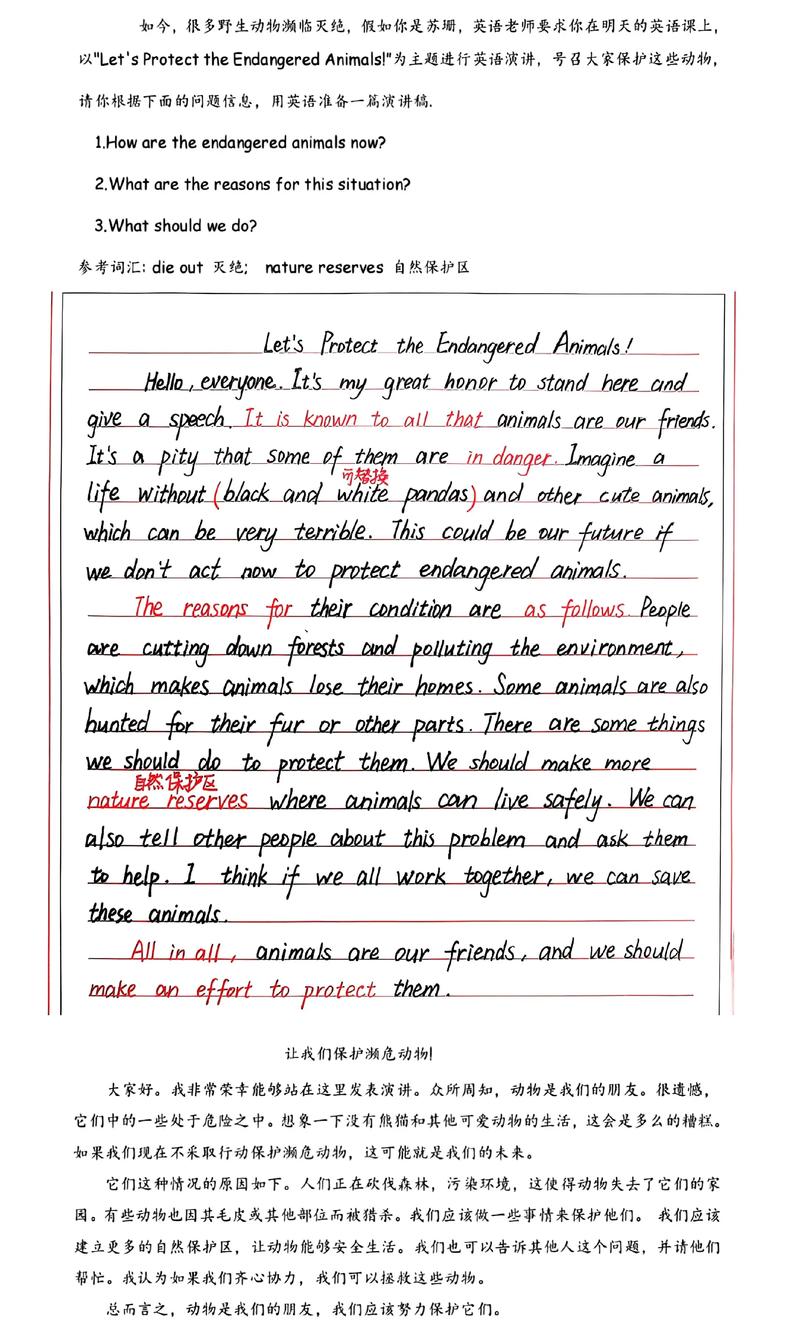 如今，很多野生动物濒临灭绝，假如你是苏珊，英语老师要求你在明天的英语课上，
以"Let's Protect the Endangered Animals!"为主题进行英语演讲，号召大家保护这些动物，
请你根据下面的问题信息，用英语准备一篇演讲稿.
1.How are the endangered animals now?
2.What are the reasons for this situation?
3.What should we do?
参考词汇: die out 灭绝; nature reserves 自然保护区
Let's Protect the Endangered Animals!
Hello, everyone. It's my great honor to stand here and
give a speech. It is known to all that animals are our friends.
It's a pity that some of them are in danger. Imagine a
可替换
life without (black and white pandas) and other cute animals,
which can be very terrible. This could be our future if
we don't act now to protect endangered animals.
The reasons for their condition are as follows. People
are cutting down forests and polluting the environment,
which makes animals lose their homes. Some animals are also
hunted for their fur or other parts. There are some things
we should do to protect them. We should make more
自然保护区
nature reserves where animals can live safely. We can
also tell other people about this problem and ask them
to help. I think if we all work together, we can save
these animals.
All in all, animals are our friends, and we should
make an effort to protect them.
让我们保护濒危动物!
大家好。我非常荣幸能够站在这里发表演讲。众所周知，动物是我们的朋友。很遗憾，
它们中的一些处于危险之中。想象一下没有熊猫和其他可爱动物的生活，这会是多么的糟糕。
如果我们现在不采取行动保护濒危动物，这可能就是我们的未来。
它们这种情况的原因如下。人们正在砍伐森林，污染环境，这使得动物失去了它们的家
园。有些动物也因其毛皮或其他部位而被猎杀。我们应该做一些事情来保护他们。 我们应该
建立更多的自然保护区，让动物能够安全生活。我们也可以告诉其他人这个问题，并请他们
帮忙。我认为如果我们齐心协力，我们可以拯救这些动物。
总而言之，动物是我们的朋友，我们应该努力保护它们。